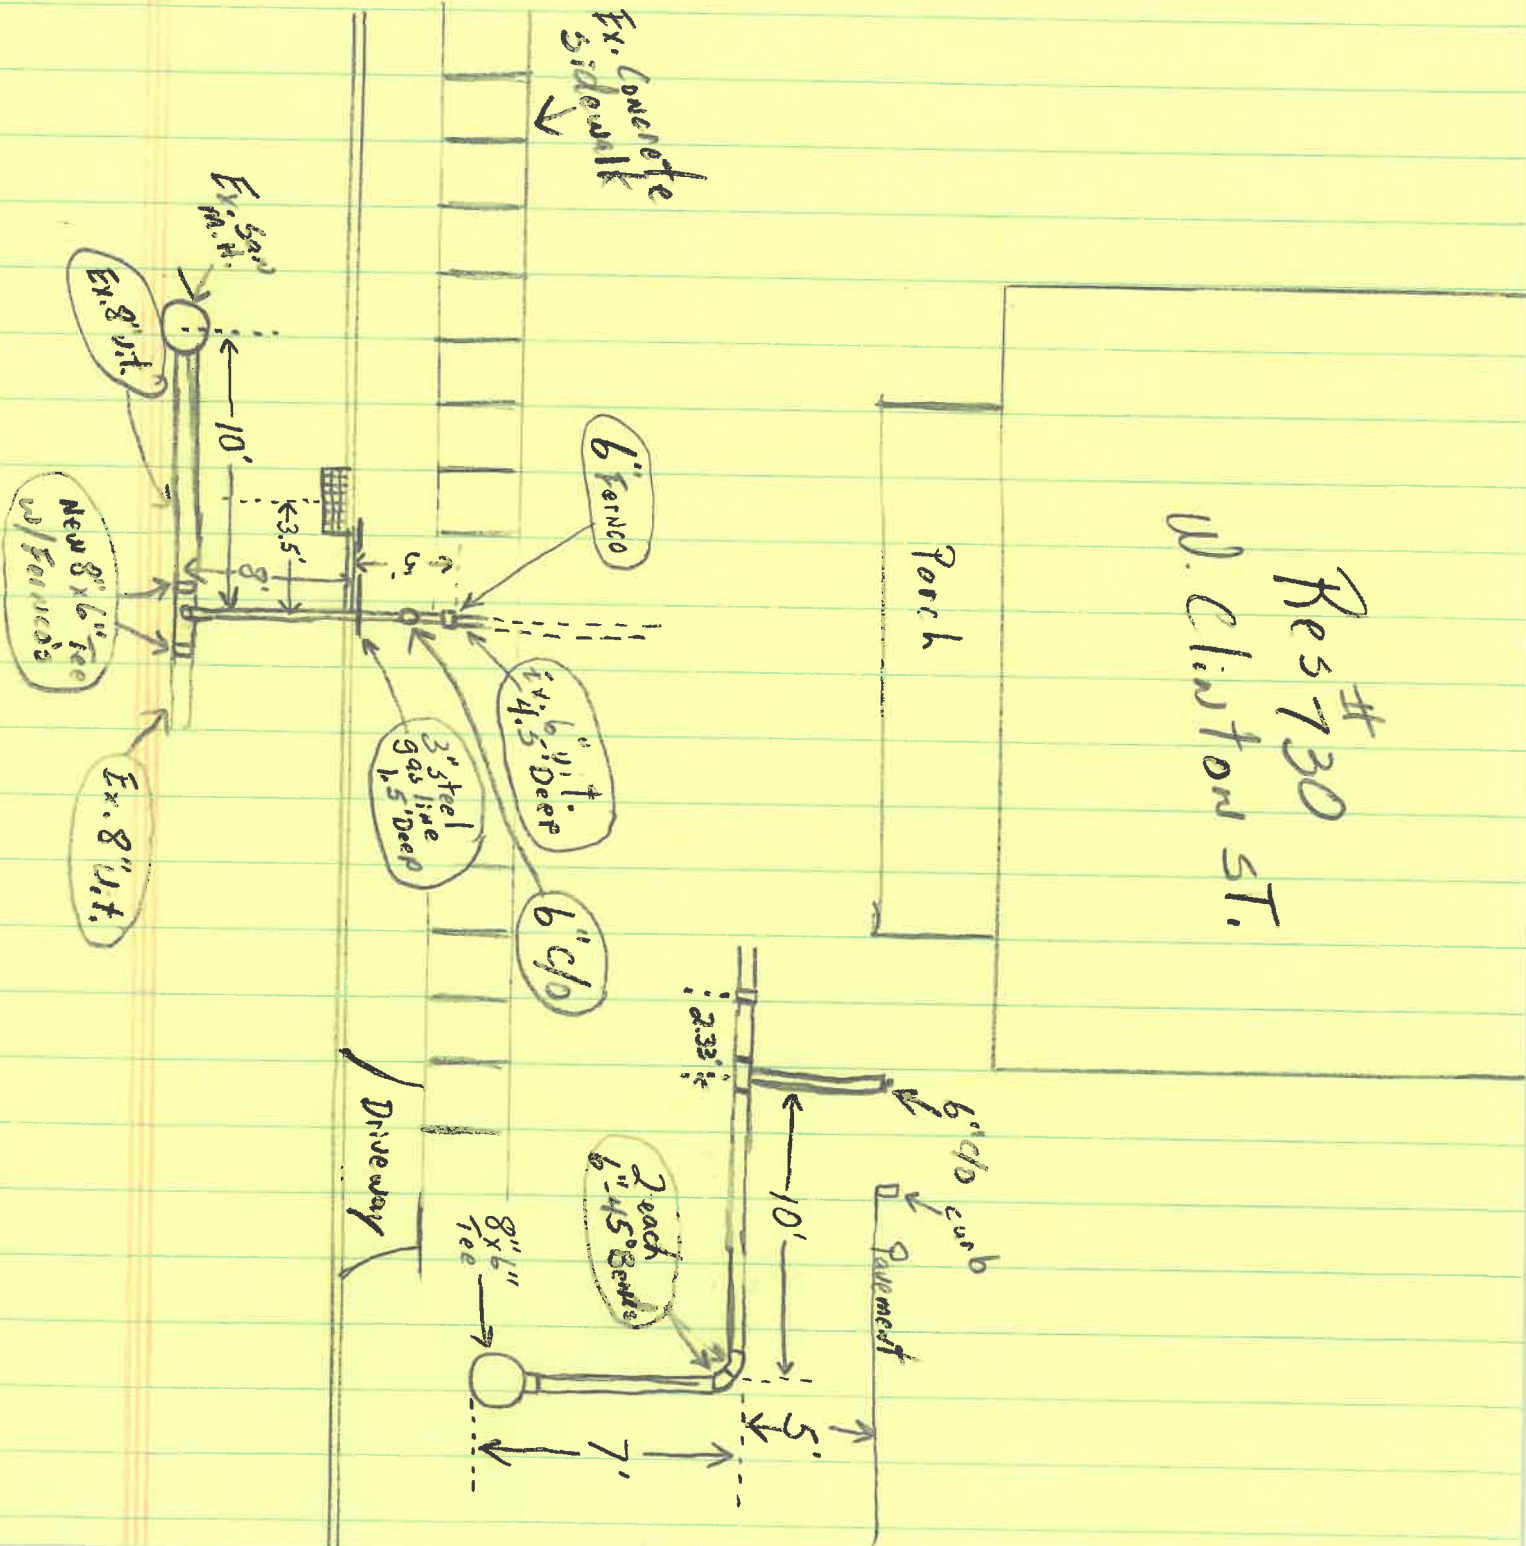 Res #730
W. Clinton ST.
Porch
Ex. Concrete
Sidewalk
Ex. San
M.H.
Ex. 8" V.t.
10'
3.5'
8'
6" Fernco
New 8"x6" Tee
w/Fernco's
Ex. 6" V.t.
4.5' Deep
3" Steel
gas line
1.5' Deep
6" c/o
Ex. 8" V.t.
Driveway
2.33'
6" c/o
curb
Pavement
10'
2 each
6"-45° Bends
8"x6"
Tee
5'
7'